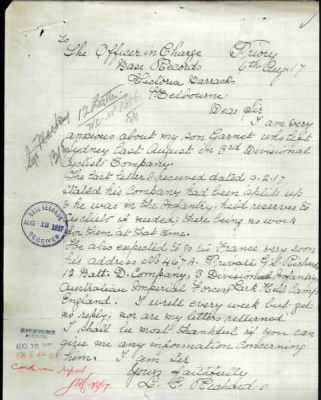 To
The Officer in Charge Priory
Base Records 6th Aug 17
Victoria Barracks
Melbourne
Dear Sir
I am very
anxious about my son Garnet who left
Sydney last August in 3rd Divisional
Cyclists Company.
The last letter I received dated 9.2.17
stated his Company had been split up
& he was in the Infantry, held reserves to
Cyclists if needed; there being no work
for them at that time.
He also expected to go to France very soon
his address No 467A. Private G.
12 Batt. D. Company, 3 Division Infantry
Australian Imperial Force, Lark Hill Camp
England. I write every week but get
no reply; nor are my letters returned
I shall be most thankful if you can
give me any information concerning
him. I am Sir
Yours Faithfully
BASE RECORDS
AUG 13 1917
RECEIVED
12 Battn
AUG 13